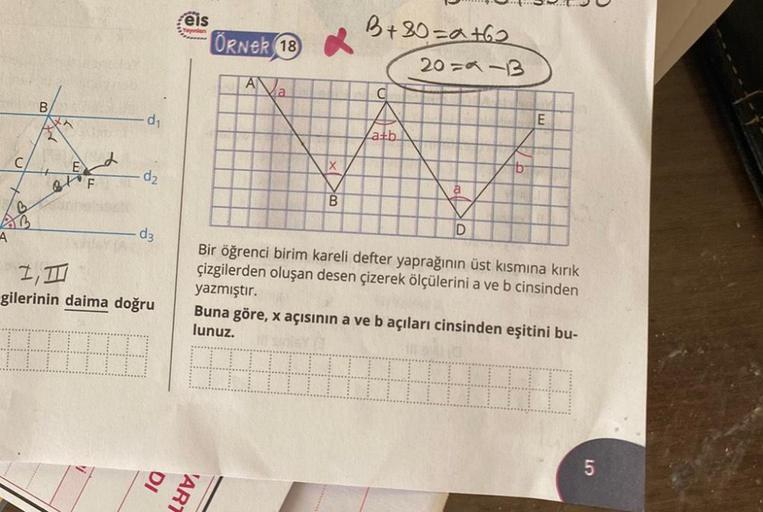 eis
Yayınları
ÖRNEK 18
B+80=a+60
20=a-B
A
a
C
E
a+b
x
b
a
B
D
Bir öğrenci birim kareli defter yaprağının üst kısmına kırık
çizgilerden oluşan desen çizerek ölçülerini a ve b cinsinden
yazmıştır.
Buna göre, x açısının a ve b açıları cinsinden eşitini bu-
lunuz.
B
d1
C
E
F
d2
B
B
A
d3
I, III
gilerinin daima doğru
5
ART
DI